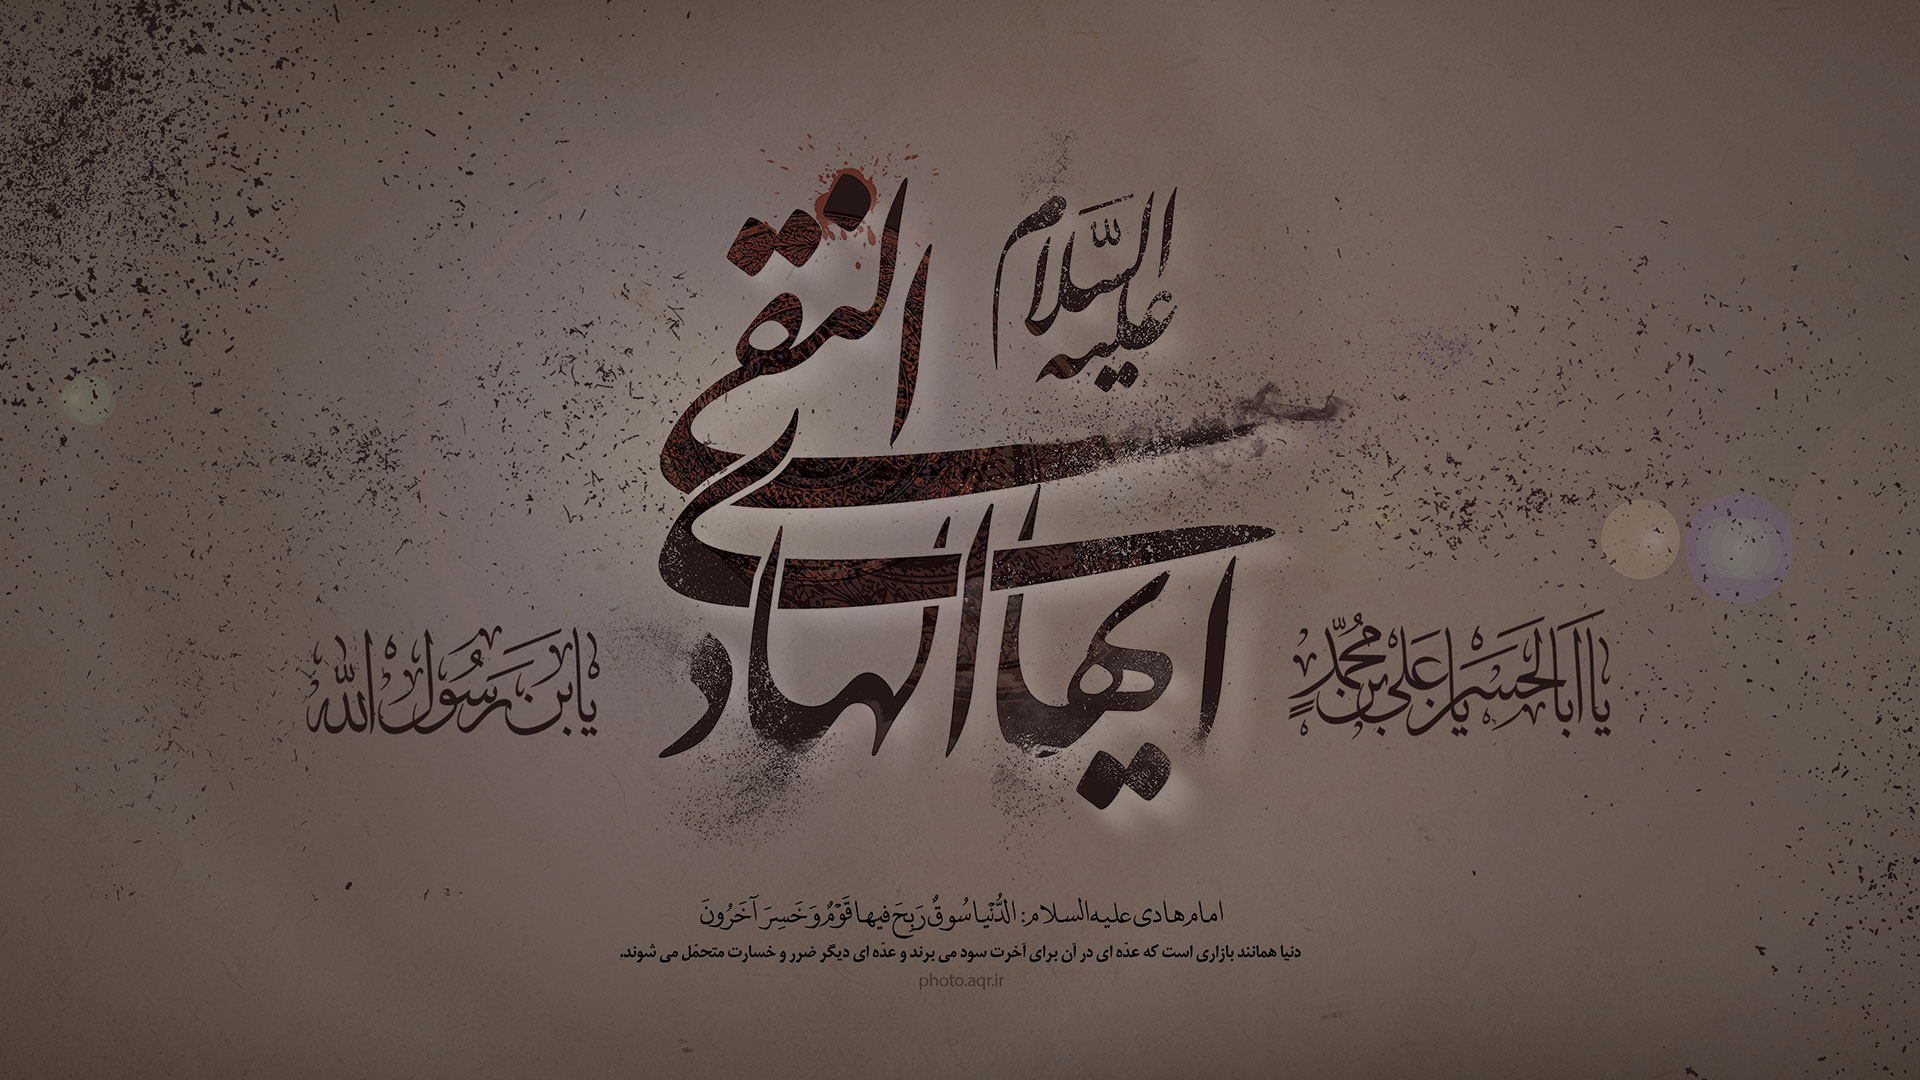 ایها الهادی النقی
علیه السلام
یا ابا الحسن یا علی بن محمد
یابن رسول الله
امام هادی علیه السلام: الدُّنْیا سُوقٌ رَبِحَ فیها قَوْمٌ وَ خَسِرَ آخَرُونَ
دنیا همانند بازاری است که عدّه ای در آن برای آخرت سود می برند و عدّه ای دیگر ضرر و خسارت متحمّل می شوند.
photo.aqr.ir